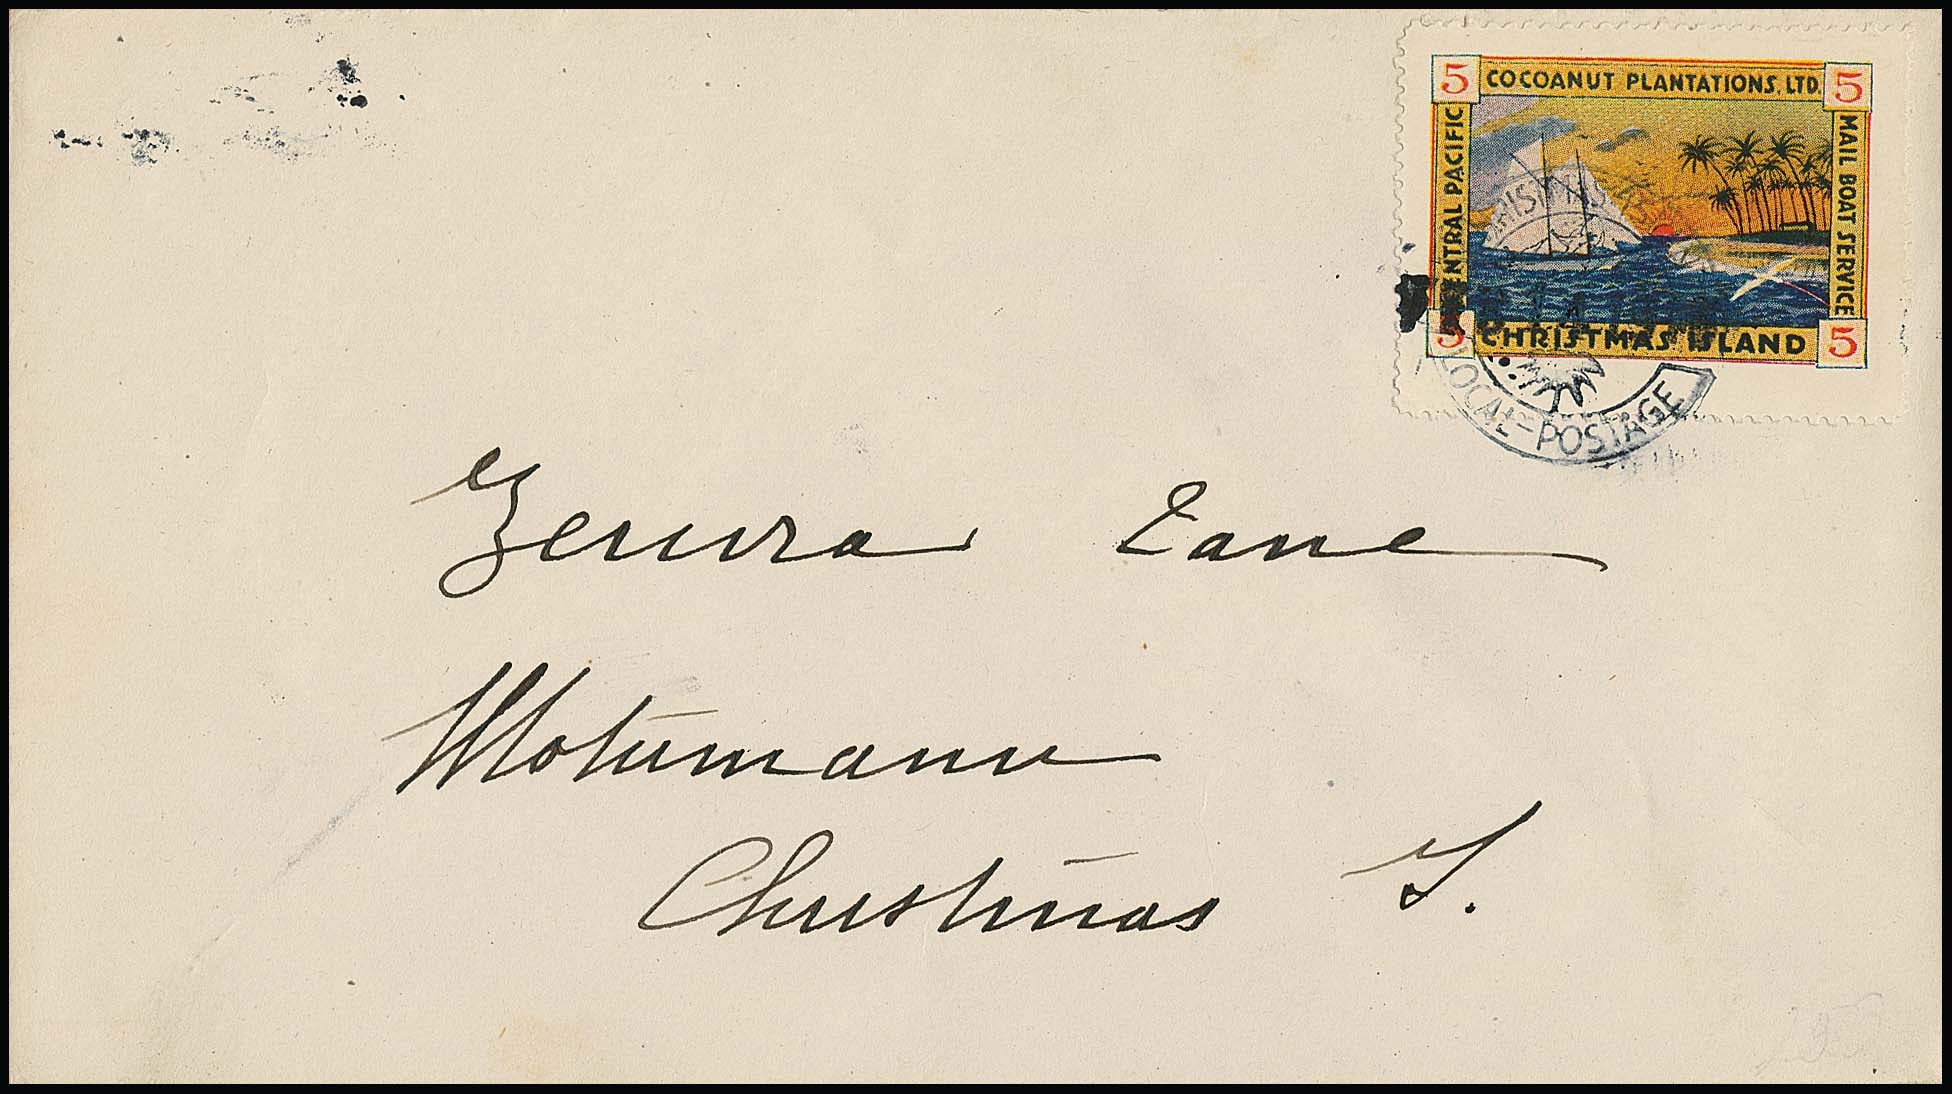 5 COCOANUT PLANTATIONS, LTD. 5
CENTRAL PACIFIC
MAIL BOAT SERVICE
5 CHRISTMAS ISLAND 5
CHRISTMAS ISLAND
LOCAL-POSTAGE
Tane
Motumanu
Christmas I.